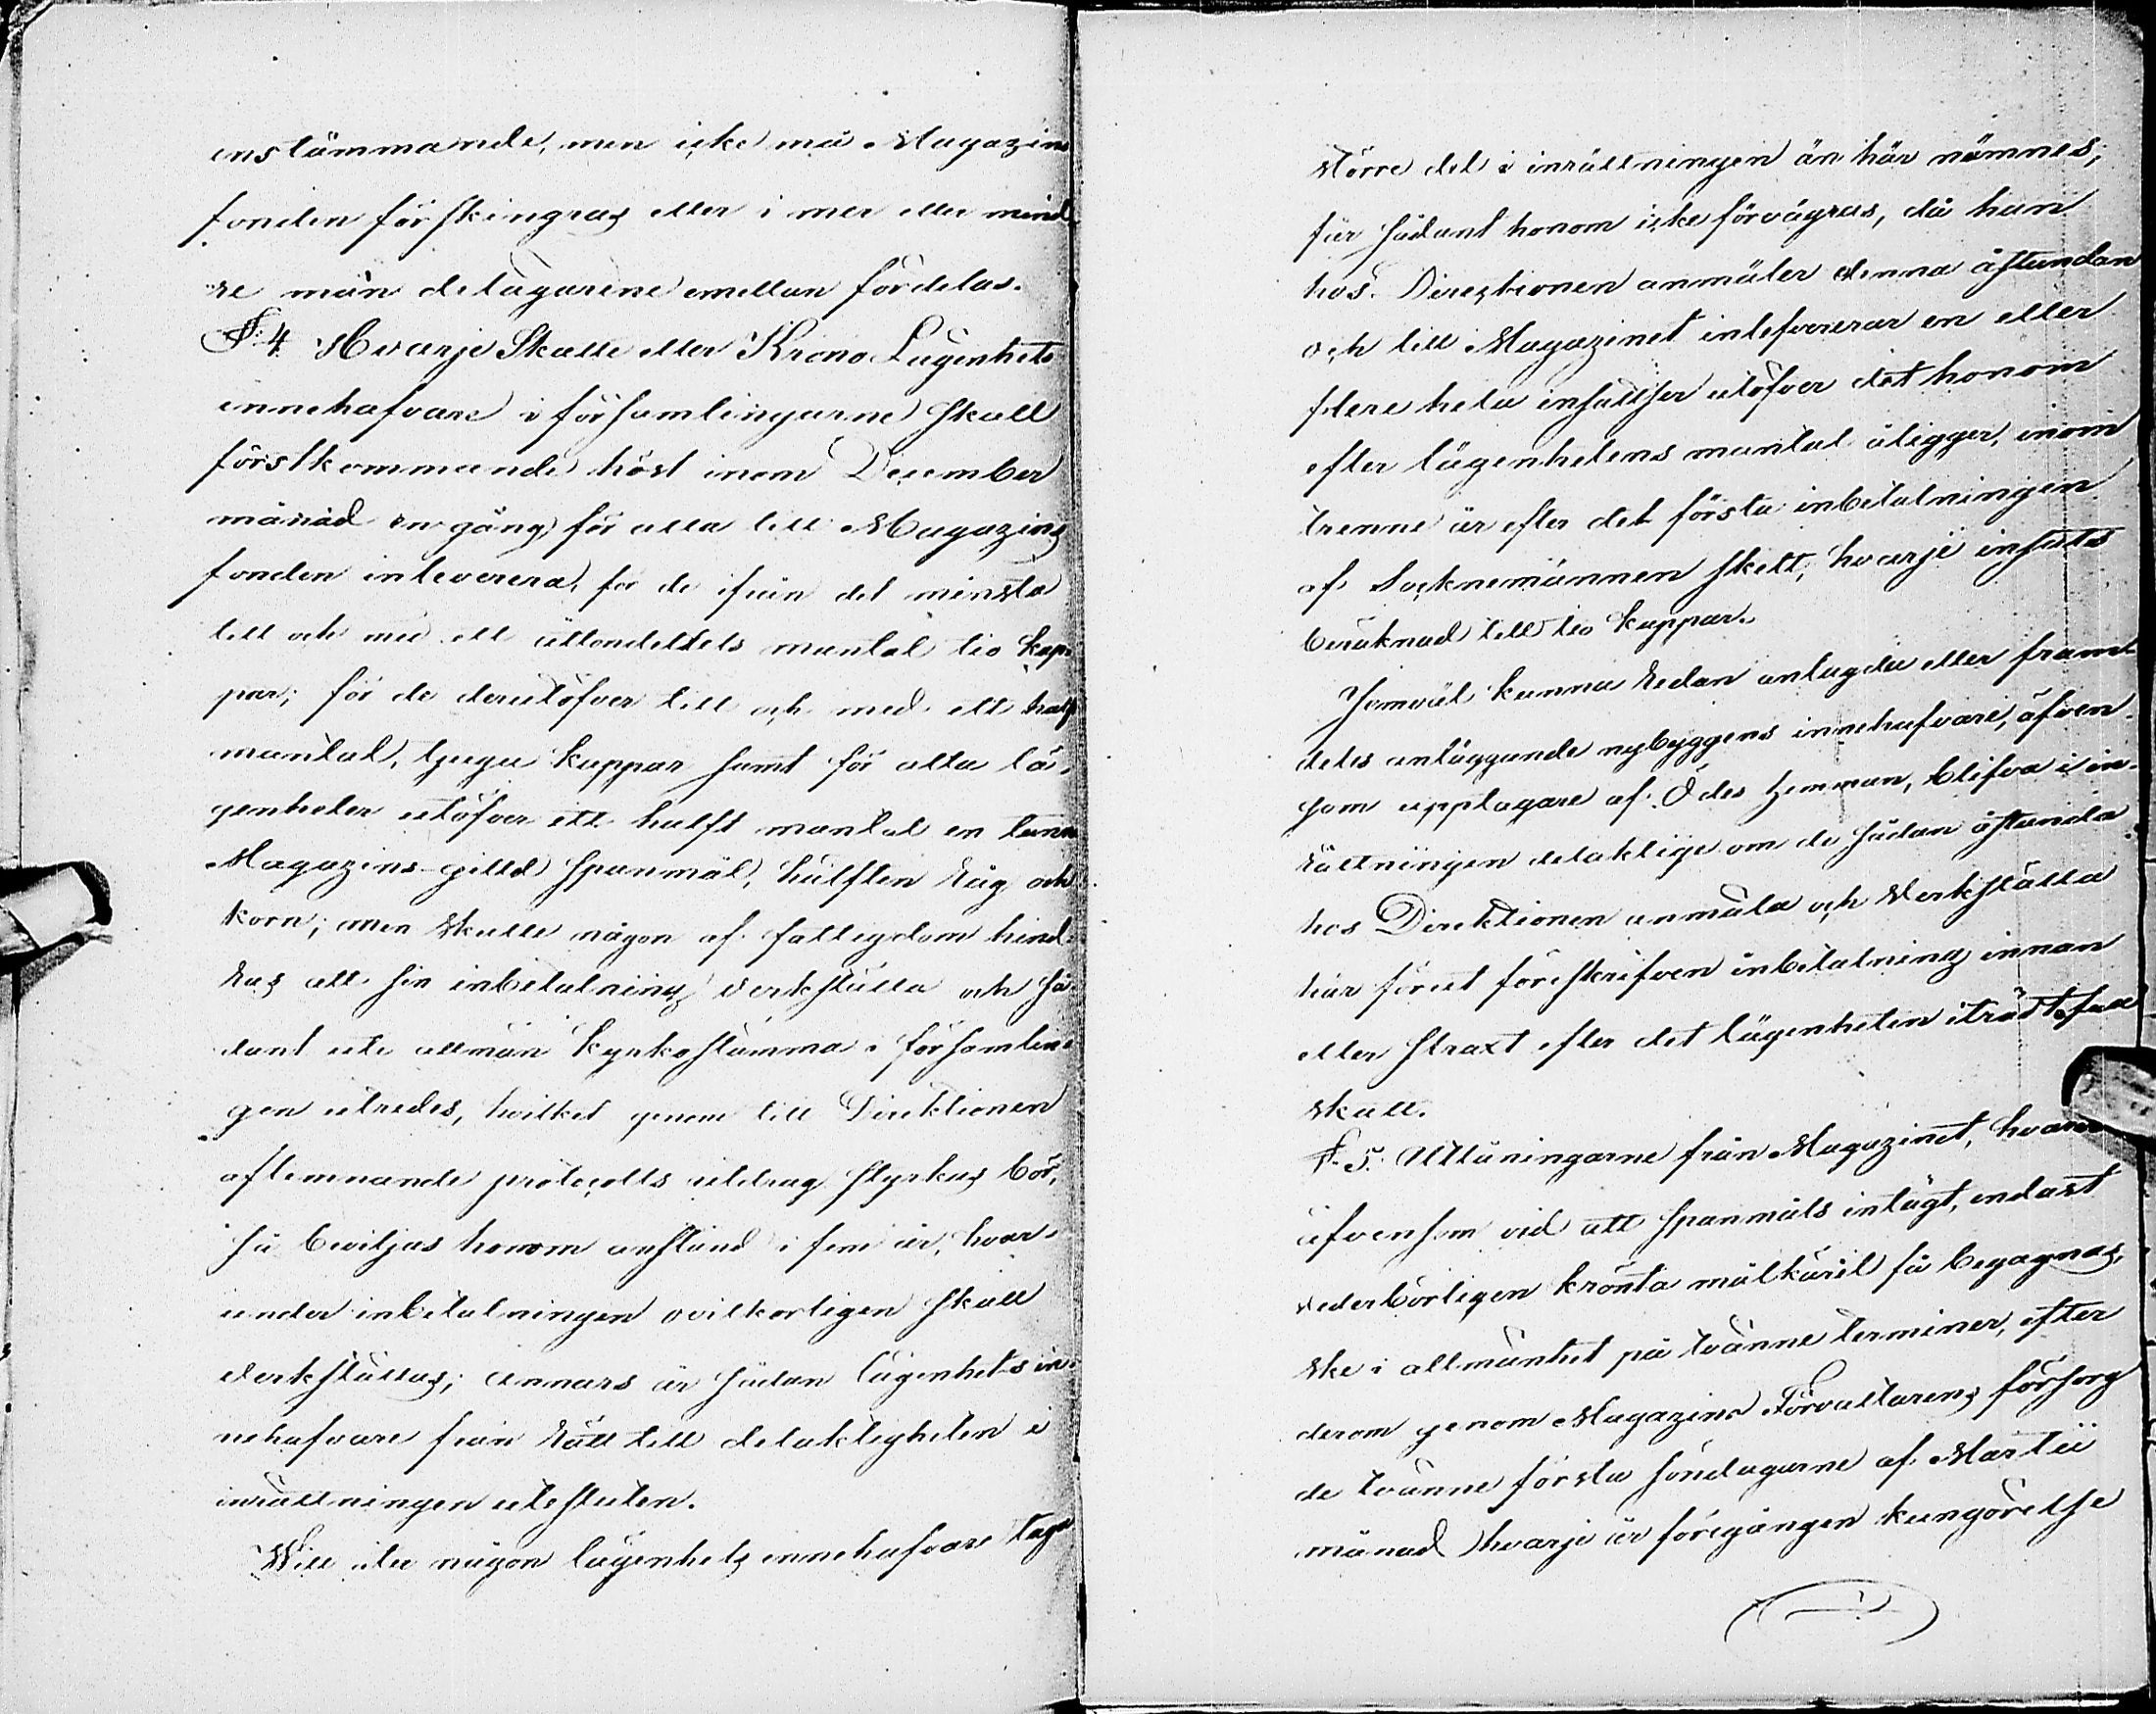 enstämmande, men icke må Magazins
fonden förskingras eller i mer eller mind
re mån delägarene emellan fördelas.
§: 4 Hvarje Skatte eller Krono Lägenhets
innehafvare i församlingarne skall
förstkommande höst inom December
månad en gång för alla till Magazins
fonden inleverera, för de ifrån det minsta
till och med ett åttondeldels mantal tio kap-
par; för de derutöfver till och med ett halft
mantal, tjugu kappar samt för alla lä-
genheter utöfver ett halft mantal en tunna
Magazins-gilld spanmål, hälften råg och
korn; men skulle någon af fattigdom hind-
ras att sin inbetalning verkställa och så-
dant ute allmän kyrkostämma i församlin-
gen utredes, hvilket genom till Direktionen
aflemnande protocolls utdrag styrkas bör,
så beviljas honom anstånd i fem år, hvar-
under inbetalningen ovilkorligen skall
verkställas; annars är sådan lägenhets in-
nehafvare från rätt till delaktigheten i
inrättningen utesluten.
Will åter någon lägenhets innehafvare taga
större del i inrättningen än här nämnes;
får sådant honom icke förvägras, då han
hos Direktionen anmäler denna åstundan
och till Magazinet inlefvererar en eller
flere hela insattser utöfver det honom
efter lägenhetens mantal åligger, inom
trenne år efter det första inbetalningen
af Socknemännen skett, hvarje insats
beräknad till tio kappar.
Jemväl kunna redan anlagda eller fram-
deles anläggande nybyggens innehafvare, äfven
som upptagare af Ödes hemman, blifva i in-
rättningen delaktige om de sådan åstundan
hos Direktionen anmäla och verkställa
här förut föreskrifven inbetalning innan
eller straxt efter det lägenheten iträdt
skall.
§. 5. Utlåningarne från Magazinet, hvarvid
äfvensom vid allt spanmåls intägt, endast
vederbörligen krönta målkäril få begagnas,
ske i allmänhet på tvänne terminer, efter
derom genom Magazins Förvaltarens försorg
de tvänne första söndagarne af Martii
månad hvarje år föregången kungörelse